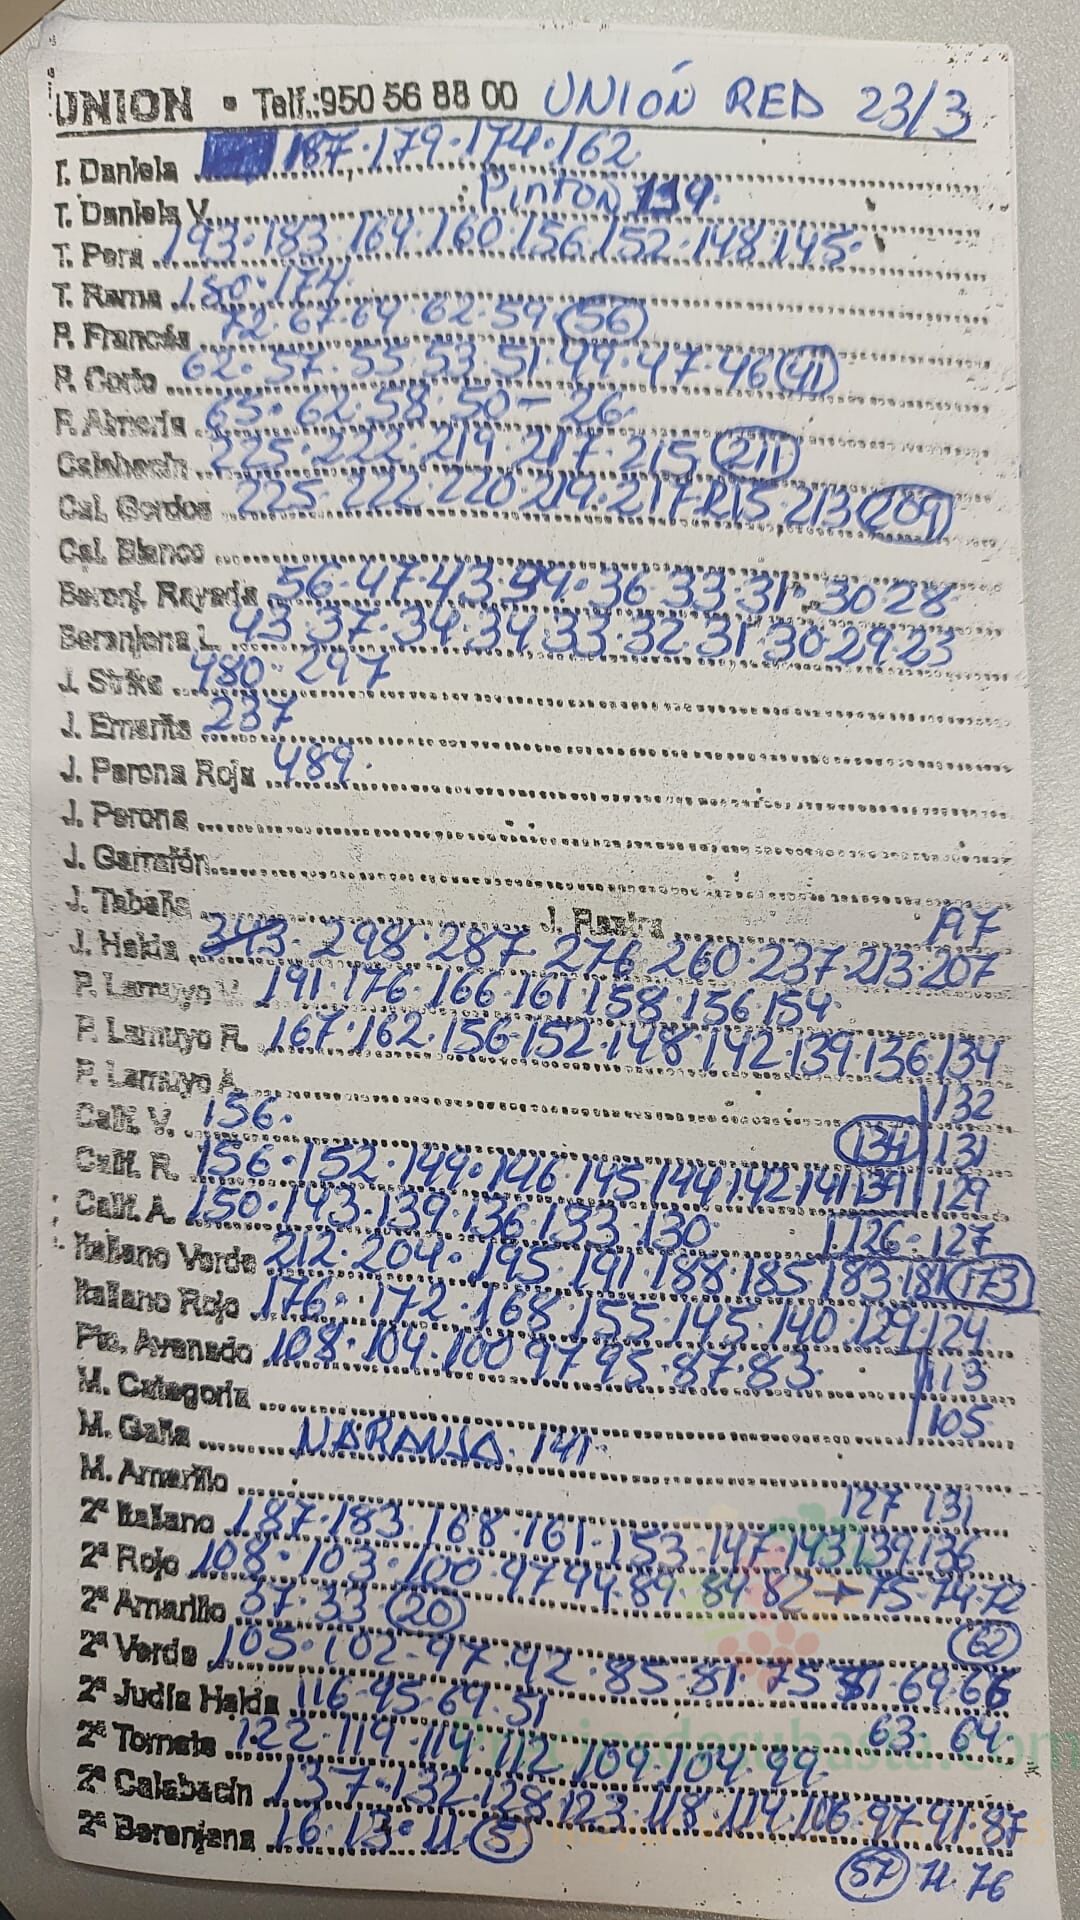 UNION • Telf.:950 56 88 00 UNIÓN RED 23/3
T. Daniela 187.179.174.162
T. Daniela V. Pinton 119.
T. Pera 193.183.164.160.156.152.148.145.
T. Rama 180.174.
P. Francés 72.67.64.62.59.56
P. Corto 62.57.55.53.51.49.47.46 41
P. Almería 65.62.58.50-26.
Calabacín 225.222.219.217.215 211
Cal. Gordos 225.222.220.219.217.215.213 209
Cal. Blanco
Berenj. Rayada 56.47.43.39.36.33.31.30 28
Berenjena L. 43.37.34.34.33.32.31.30.29.23
J. Strike 480.297
J. Emerite 237
J. Perona Roja 489.
J. Perona
J. Garrafón
J. Tabella J. Plastra 197
J. Helda 343.298.287.276.260.237.213.207
P. Lamuyo V. 191.176.166.161.158.156.154
P. Lamuyo R. 167.162.156.152.148.142.139.136.134
P. Lamuyo A. 132
Calif. V. 156. 134 131
Calif. R. 156.152.149.146.145.144.142.141.139 129
Calif. A. 150.143.139.136.133.130. 126.127
Italiano Verde 212.204.195.191.188.185.183.181 173
Italiano Rojo 176.172.168.155.145.140.129.124
Pto. Asurado 108.104.100 97 95.87.83. 113
M. Categoría 105
M. Galia NARANJA. 141.
M. Amarillo 127 131
2ª Italiano 187.183.168.161.153.147.143 139.136
2ª Rojo 108.103.100.97 94.89.84 82 → 75.74.72
2ª Amarillo 37.33.20 62
2ª Verde 105.102.97.92.85.81.75 71.69.66
2ª Judía Helda 116.95.69.51 63.64
2ª Tomate 122.119.114.112.109.104.99.
2ª Calabacín 137.132.128.123.118.114.106.97.91.87
2ª Berenjena 16.13.11.5
57 71.76
Preciosdesubasta.com